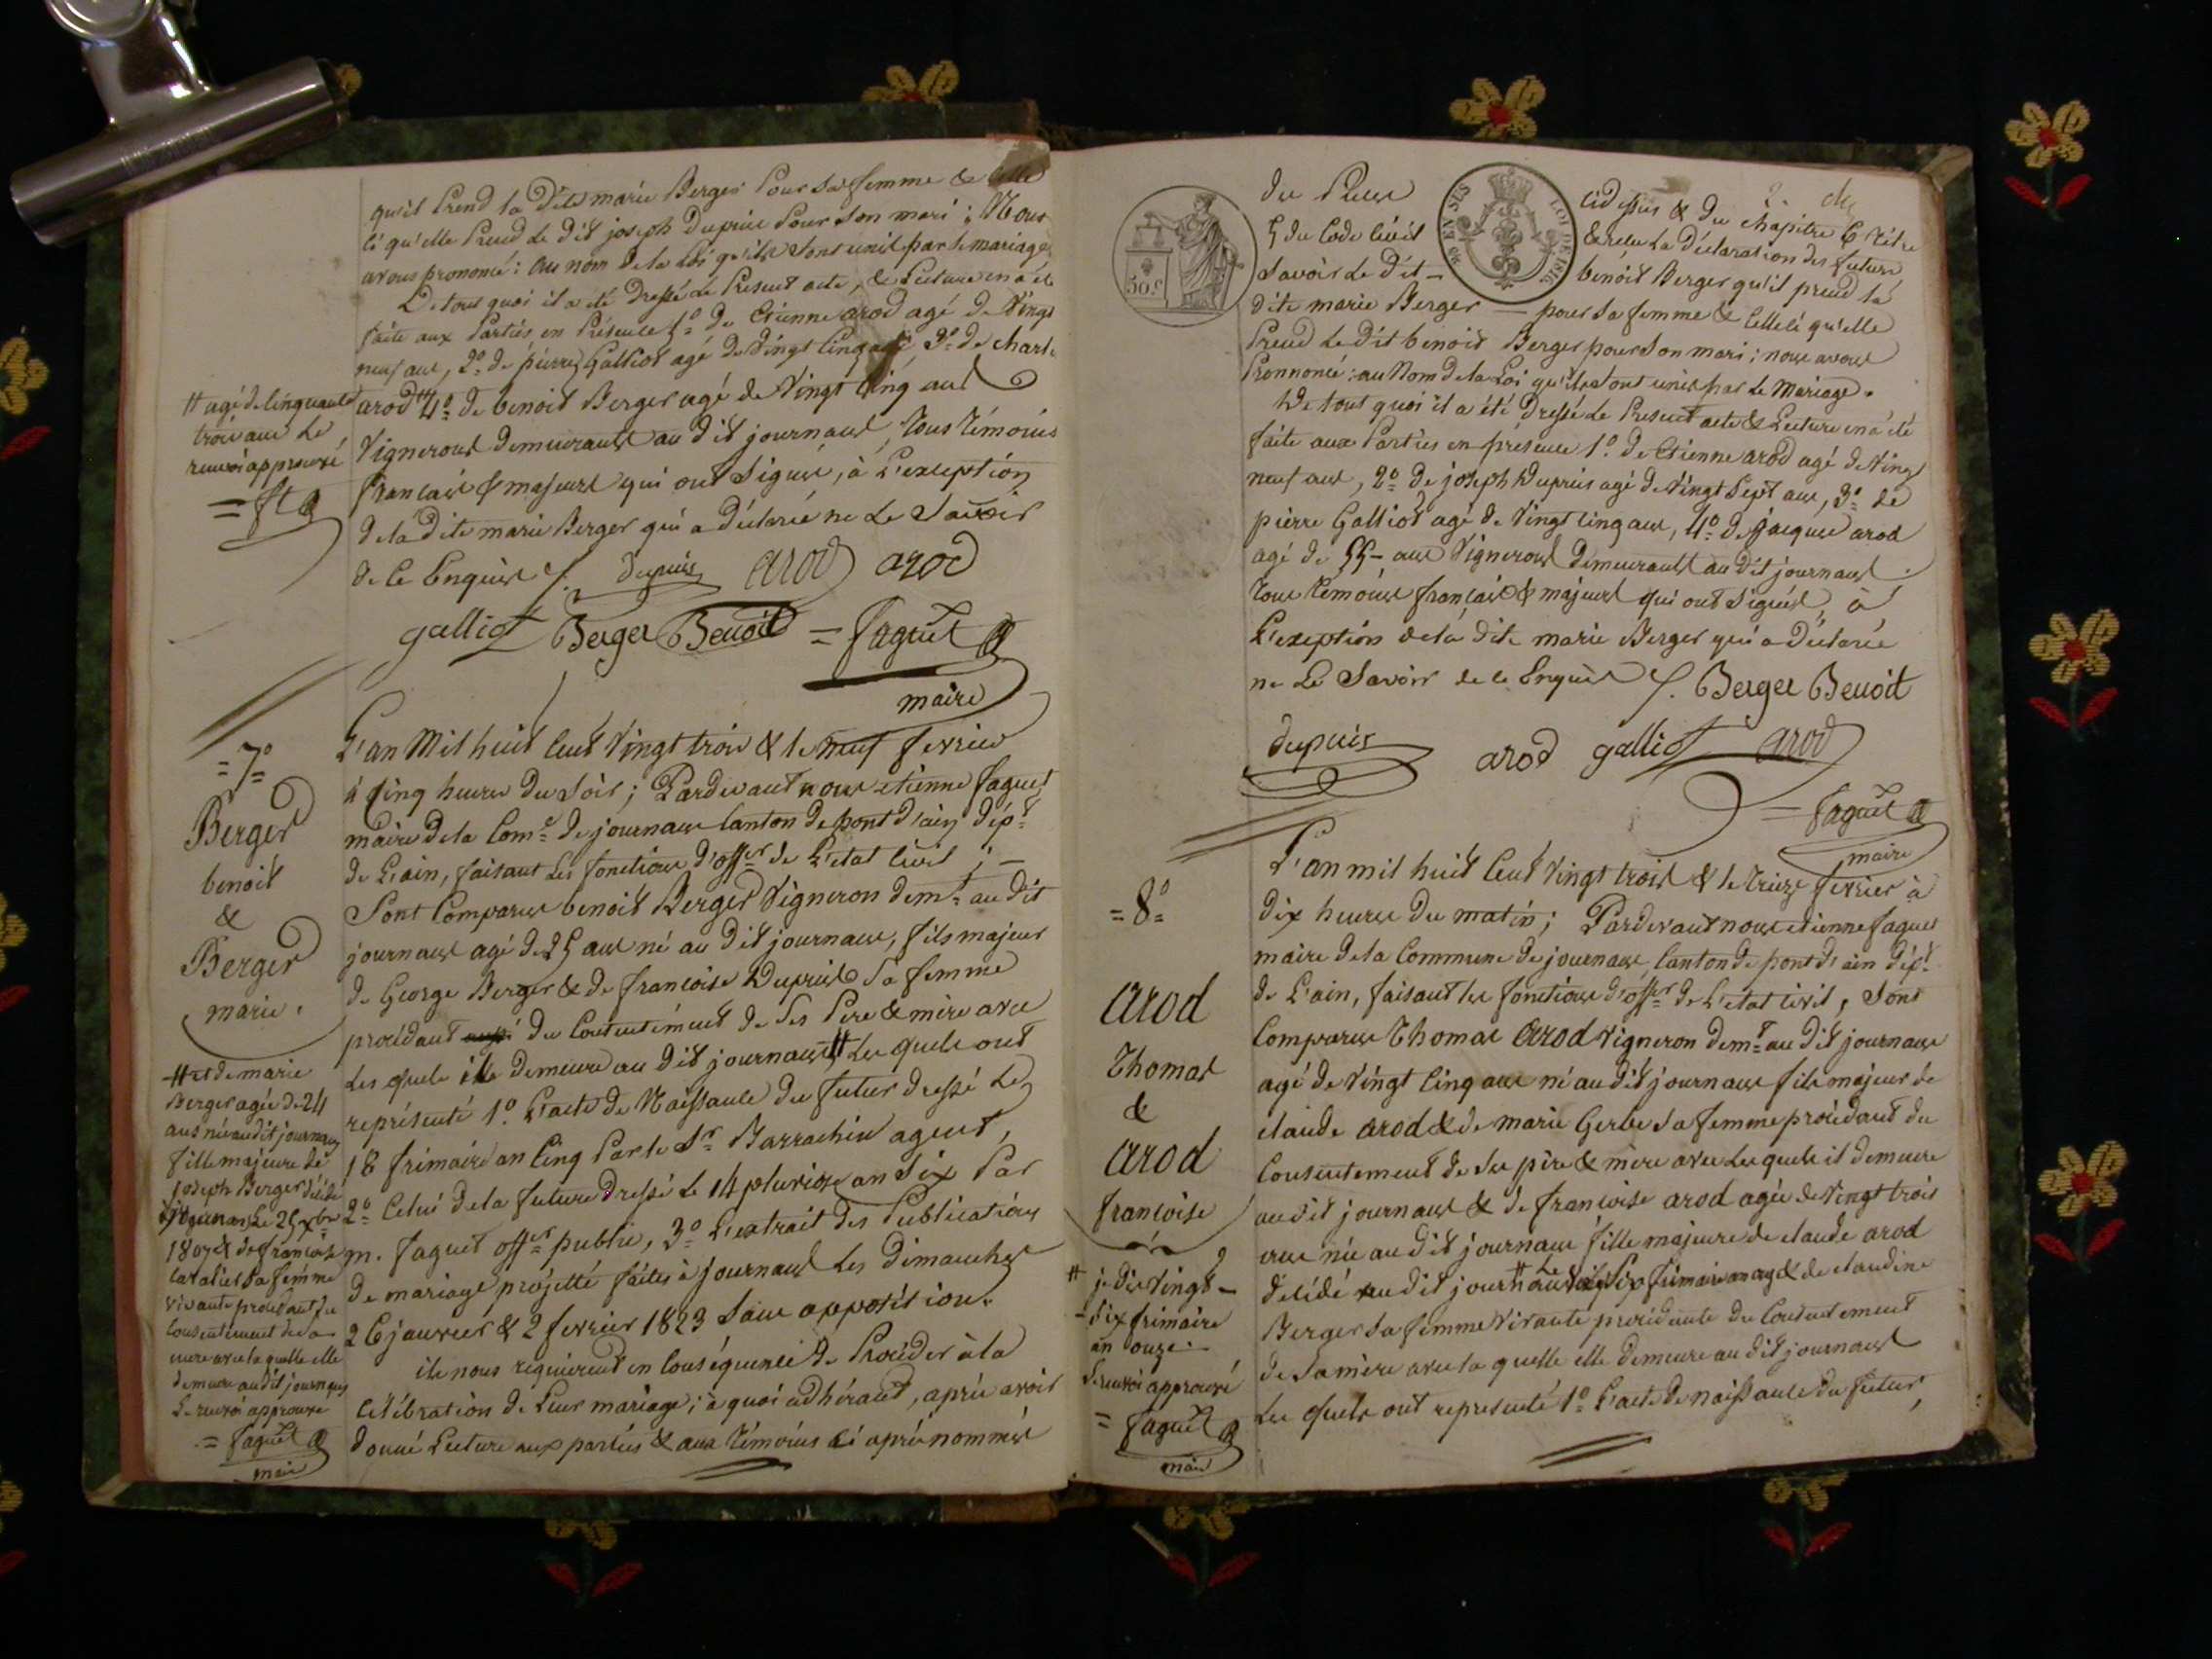 qu'il Prend la Dite marie Berger Pour Sa femme & Celle
ci qu'elle Prend Le Dit joseph Dupuis Pour Son mari ; Nous
avons prononcé : au nom De la Loi qu'ils Sont unis par le mariage
De tout quoi il a été Dressé Le Présent acte, & Lecture en a été
faite aux Parties en Présence 1º De Etienne arod agé De Vingt
neuf ans, 2º De pierre Galliot agé De Vingt Cinq ans, 3º De charle
arod # 4º De benoit Berger agé de Vingt Cinq ans
Vignerons Demeurants au Dit journans, Tous Témoins
français & majeurs qui ont Signés, à L'exception
De la Dite marie Berger qui a Déclarée ne Le Savoir
de Ce Enquise /. Dupuis arod arod
galliot Berger Benoit = faguet
maire
# agé de Cinquante
trois ans Le
renvoi approuvé
= ft
= 7º =
Berger
benoit
&
Berger
marie.
L'an Mil huit Cent Vingt trois & le neuf fevrier
à Cinq heures Du Soir ; Pardevant nous etienne faguet
maire De la Com.e De journans Canton De pont D'ain Dép.t
De L'ain, faisant Les fonctions D'off.er De L'etat Civil ; —
Sont Comparus benoit Berger Vigneron dem.t au Dit
journans agé de 25 ans né au Dit journans, fils majeur
de George Berger & de francoise Dupuis Sa femme
procédant Du Consentement De Ses Pere & mère avec
Les quels ils demeure au Dit journans # Les quels ont
représenté 1º L'acte De Naissance Du futur Dressé Le
18 frimaire an Cinq Par le Sr. Barrachin agent,
2º Celui De la future Dressé Le 14 pluviose an Six Par
m. faguet off.er public, 3º L'extrait Des Publications
De mariage projetté faites à journans Les Dimanches
26 janvier & 2 fevrier 1823 Sans opposition.
ils nous requièrent en Conséquence De Procéder à la
Célébration De Leur mariage ; à quoi adhérant, après avoir
Donné Lecture aux parties & aux Témoins Ci après nommés
# et de marie
Berger agée De 24
ans née au dit journans
fille majeure De
joseph Berger Décédé
Le 25 Xbre
1807 & de francoise
Sa femme
Vivante procédant Du
Consentement de Sa
mere avec la quelle elle
demeure au dit journans
Le renvoi approuvé
= faguet
maire
50.c
EN SUS
LOI DE 1816
2.
Du Pieces Ci dessus & du chapitre 6 Titre
5 du Code Civil & reçu La Déclaration des futurs
Savoir Le Dit — benoit Berger qu'il prend la
dite marie Berger — pour Sa femme & Celle ci qu'elle
Prend Le Dit benoit Berger pour Son mari ; nous avons
Prononcé : au Nom De la Loi qu'ils Sont unis par Le Mariage.
De tout quoi il a été Dressé Le Présent acte & Lecture en a été
faite aux Parties en présence 1º De Etienne arod agé de Vingt
neuf ans, 2º De joseph Dupuis agé de Vingt Sept ans, 3º De
pierre Galliot agé de Vingt Cinq ans, 4º De jacques arod
agé de 55 ans Vignerons Demeurants au Dit journans
Tous Témoins français & majeurs qui ont Signés, à
L'exeption de la dite marie Berger qui a Déclarée
ne Le Savoir de Ce Enquise /. Berger Benoit
dupuis arod galliot arod
= faguet
maire
= 8º =
arod
Thomas
&
arod
francoise
L'an mil huit Cent Vingt trois & le treize fevrier à
Dix heures Du matin ; Pardevant nous etienne faguet
maire De la Commune De journans, Canton De pont D'ain Dép.t
De L'ain, faisant les fonctions D'off.er De L'etat Civil, Sont
Comparus Thomas Arod Vigneron Dem.t au Dit journans
agé De Vingt Cinq ans né au Dit journans fils majeur De
claude arod & De marie Gerbe Sa femme procédant Du
Consentement De Ses père & mère avec Lesquels il Demeure
au Dit journans & De francoise arod agée De Vingt trois
ans née au Dit journans fille majeure De claude arod
Décédé au Dit journans # & De claudine
Berger Sa femme Vivante procédante Du Consentement
De Sa mère avec la quelle elle Demeure au Dit journans
Les quels ont représenté 1º L'acte De naissance Du futur,
# je dis Vingt —
- Six frimaire
an onze. —
Le renvoi approuvé
= faguet
maire